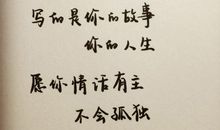 写的是你的故事
你的人生
愿你情话有主
不会孤独